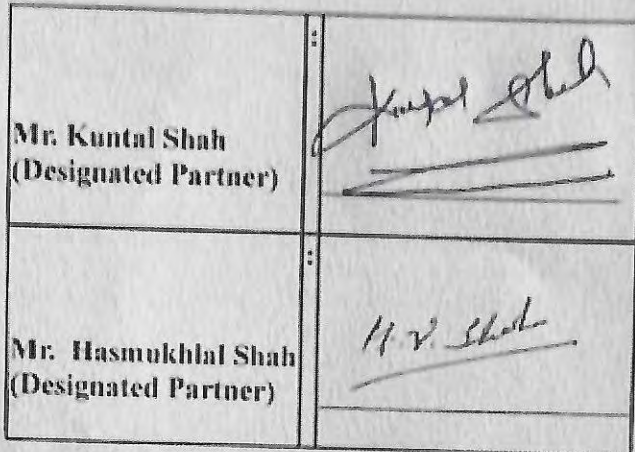 :
Mr. Kuntal Shah
(Designated Partner)
Kuntal Shah
:
Mr. Hasmukhlal Shah
(Designated Partner)
H. V. Shah